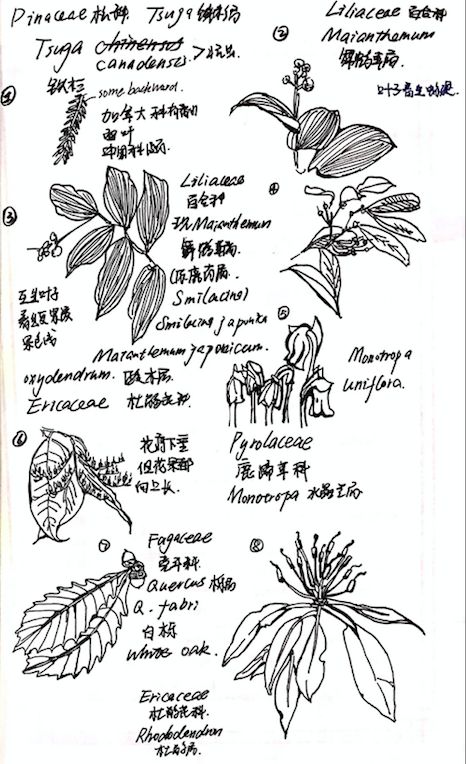 Pinaceae 松科. Tsuga 铁杉属
Tsuga chinensis
canadensis.
①
铁杉
some backward.
加拿大
②
Liliaceae 百合科
Maianthemum
舞鹤草属
③
Liliaceae
百合科
现Maianthemum
舞鹤草属
(原鹿药属
Smilacina)
Smilacina japonica
Maianthemum japonicum.
互生叶子
④
⑤
Monotropa
uniflora.
Pyrolaceae
鹿蹄草科
Monotropa 水晶兰属
oxydendrum. 酸木属
Ericaceae 杜鹃花科
⑥
花序下垂
但花果都
向上长.
⑦
Fagaceae
壳斗科.
Quercus 栎属
Q. fabri
白栎
White oak.
⑧
Ericaceae
杜鹃花科.
Rhododendron
杜鹃属.